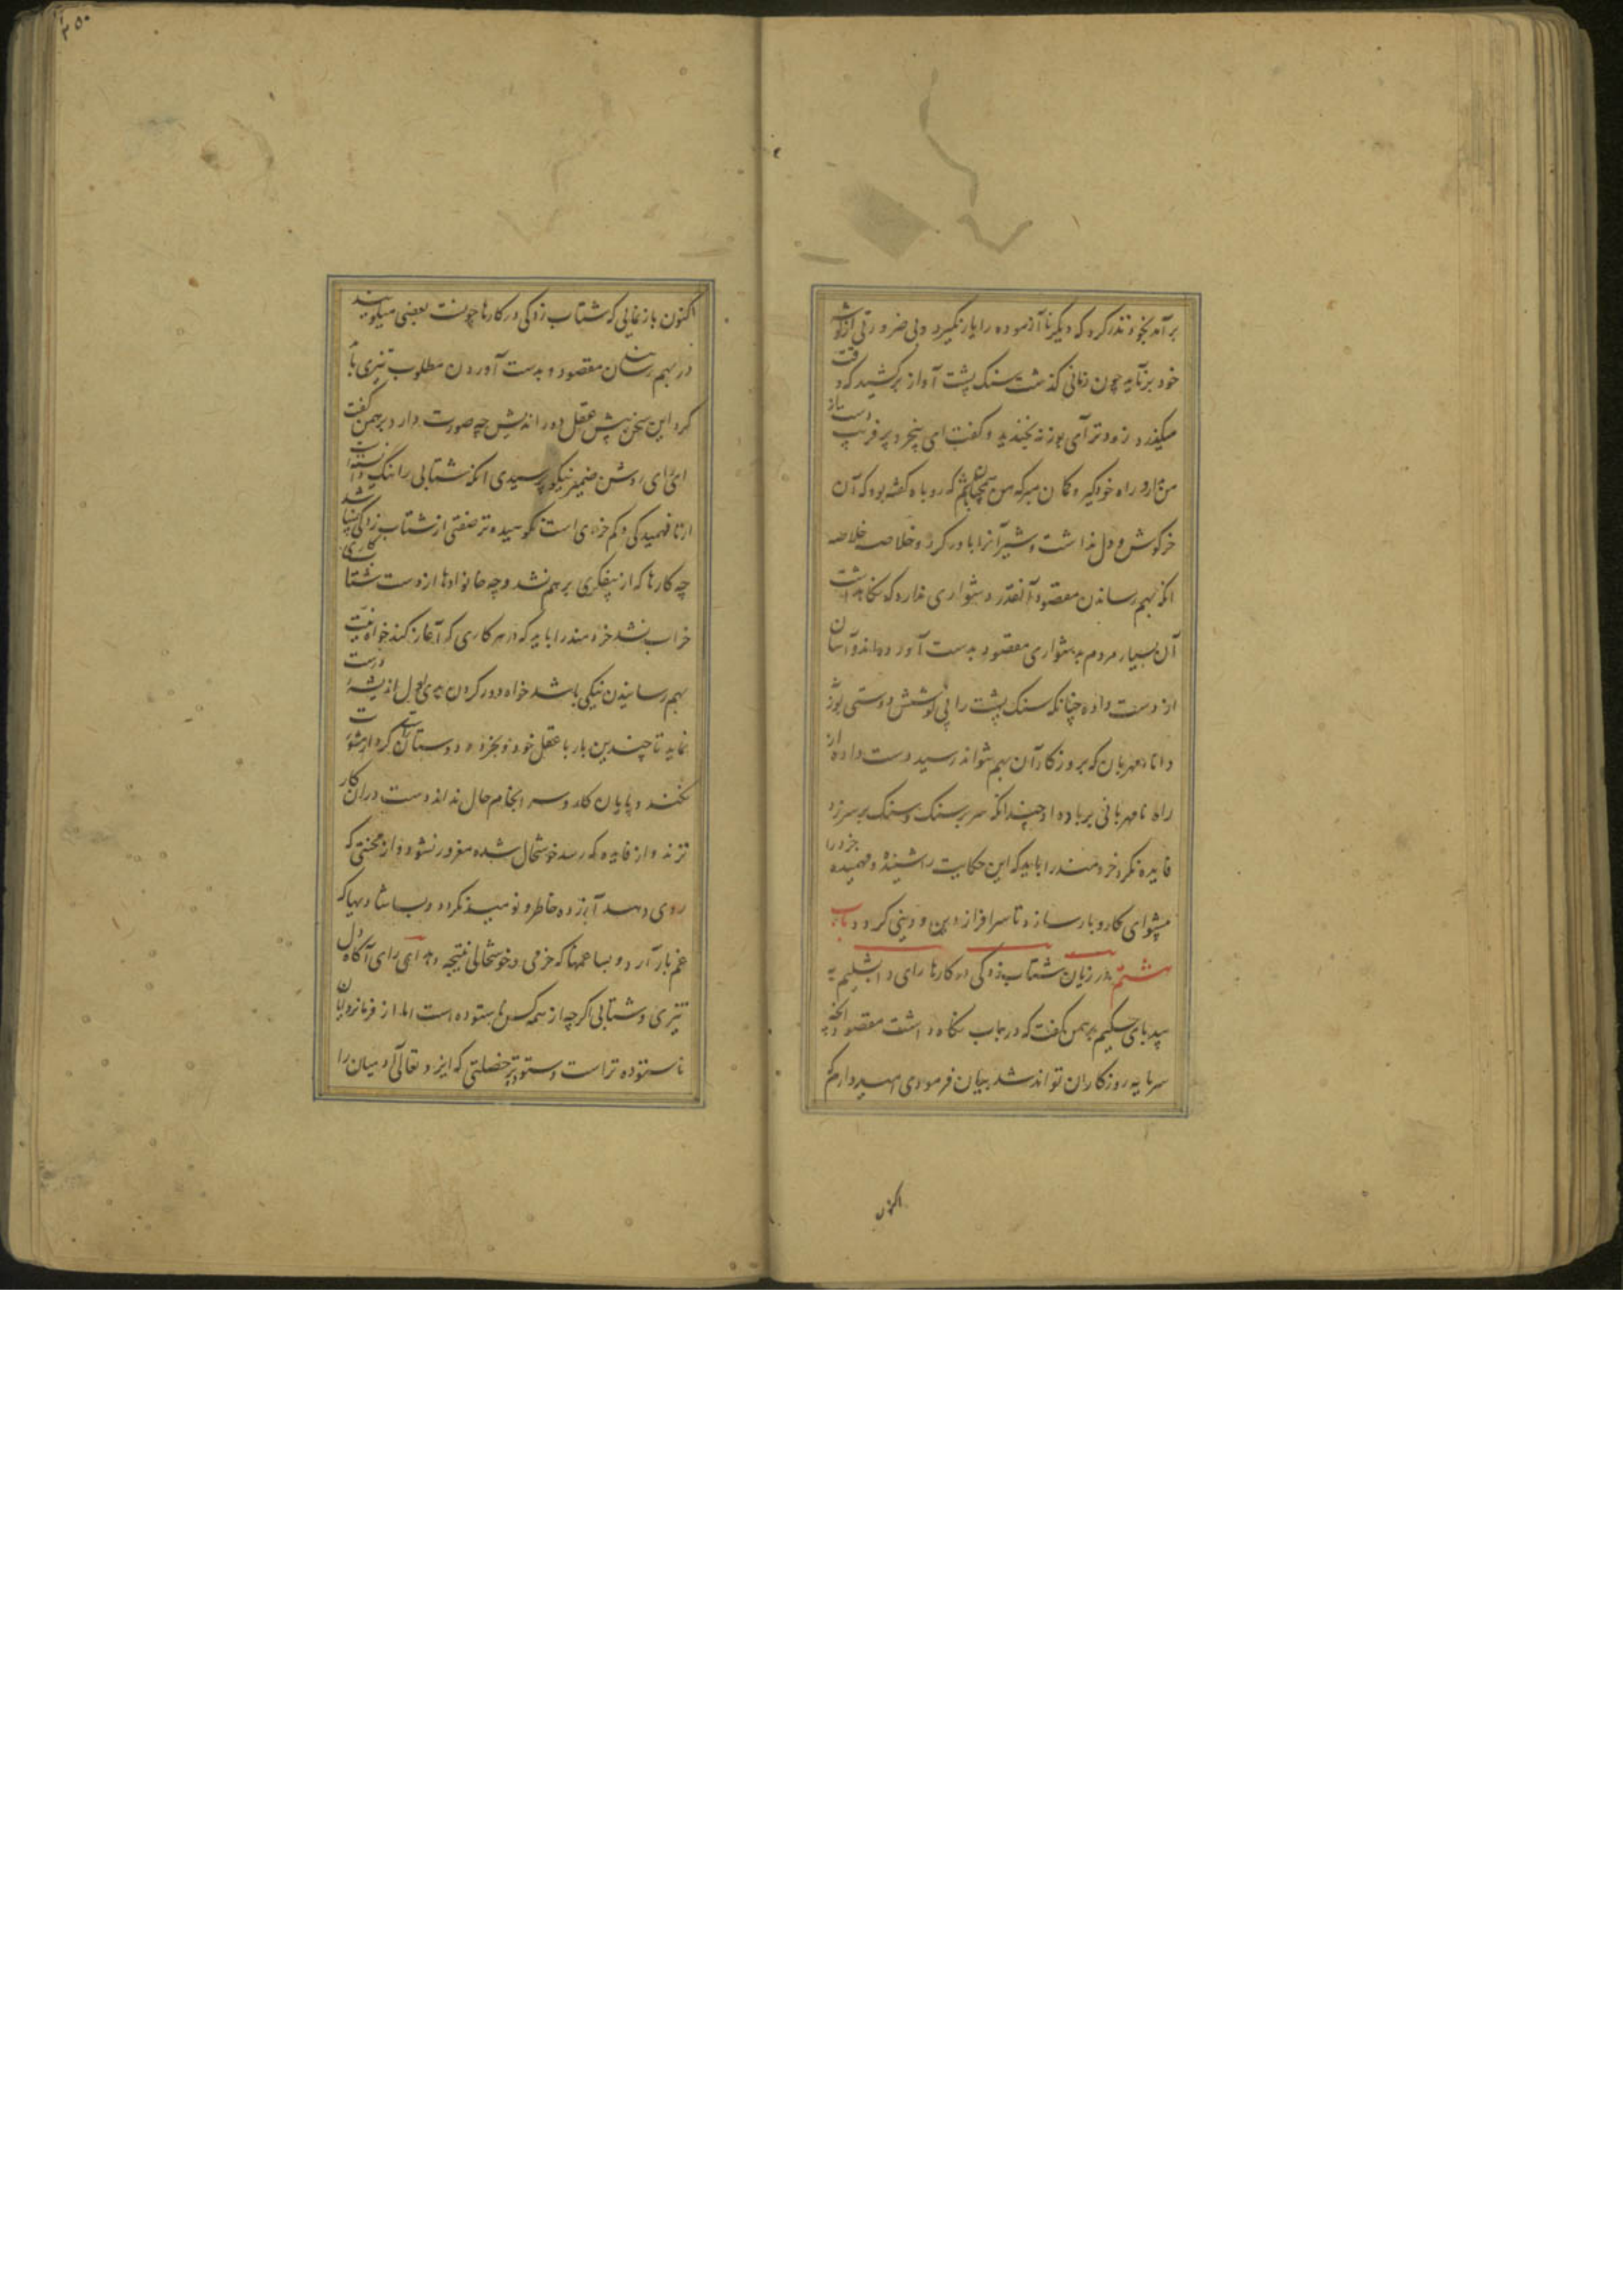 برآمد بخود نذر کرد که دیگر نا آزموده را یار نگیرد و بی ضرورتی از
خود برنیاید چون زمانی گذشت سنگ پشت آواز برکشید که وقت
میگذرد زودتر آی بوزنه بخندید و گفت ای بیخرد پر فریب دست از
من بدار و راه خود گیر و گمان مبر که من همچنان باشم که روباه گفته بود که آن
خرگوش و دل نداشت و شیر آنرا باور کرد و خلاصه خلاصه
آنکه بهم رساندن مقصود آنقدر دشواری ندارد که نگاهداشت
آن بسیار مردم بدشواری مقصود بدست آورده اند و آسان
از دست داده چنانکه سنگ پشت را بی کوشش دوستی بوزنه
دانا و مهربان که بروزگار آن بهم نتواند رسید دست داده از
راه نامهربانی برباد داد و چندانکه سر بر سنگ و سنگ بر سر زد
فایده نکرد خردمند را باید که این حکایت را شنیده و فهمیده خرد را
پیشوای کار و بار سازد تا سرافراز دین و دنیی گردد باب
ششم در زیان شتاب زدگی در کارها رای دابشلیم به
بیدپای حکیم برهمن گفت که در باب نگاه داشت مقصود آنچه
سرمایه روزگاران تواند شد بیان فرمودی امیدوارم که
اکنون
۲۵۰
اکنون باز نمایی که شتاب زدگی در کارها چونست بعضی میگویند
در بهم رساندن مقصود و بدست آوردن مطلوب تیزی باید
کرد این سخن پیش عقل دور اندیش چه صورت دارد برهمن گفت
ای رای روشن ضمیر نیکو پرسیدی آنکه شتابی را نیک دانسته
از نافهمیدگی و کم خردی است نکوهیده تر صفتی از شتاب زدگی نباشد
چه کارها که از بیفکری برهم نشد و چه خانوادها از دست شتاب کاری
خراب نشد خردمند را باید که در هر کاری که آغاز کند خواه نیت
بهم رسانیدن نیکی باشد خواه دور کردن بدی اول اندیشه درست
نماید تا چندین بار با عقل خود و بخرد دوستان کرد از مشورت
نکند و پایان کار و سرانجام حال نداند دست دران کار
نزند و از فایده که رسد خوشحال شده مغرور نشود و از محنتی که
روی دهد آزرده خاطر و نومید نگردد و بسا شادیها که
غم بار آرد و بسا غمها که خرمی و خوشحالی نتیجه دهد ای رای آگاه دل
تیزی و شتابی اگرچه از همه کس ناستوده است اما از فرمانروایان
ناستوده تر است و ستوده تر خصلتی که ایزد تعالی آدمیان را